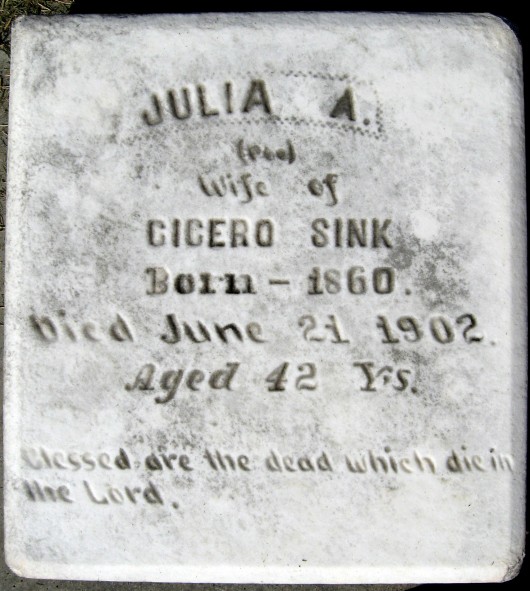 JULIA A.
Wife of
CICERO SINK
Born - 1860.
Died June 21 1902.
Aged 42 Ys.
Blessed are the dead which die in
the Lord.